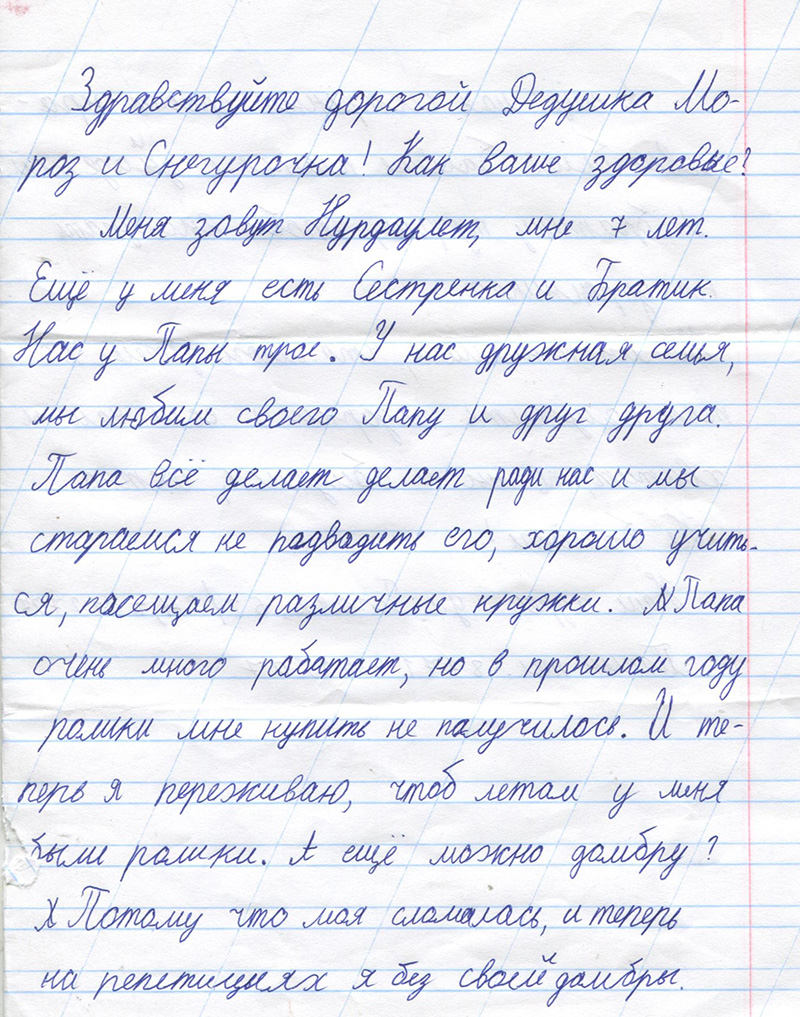 Здравствуйте дорогой Дедушка Мо-
роз и Снегурочка! Как ваше здоровье?
Меня зовут Нурдаулет, мне 7 лет.
Ещё у меня есть Сестренка и Братик.
Нас у Папы трое. У нас дружная семья,
мы любим своего Папу и друг друга.
Папа всё делает делает ради нас и мы
стараемся не подводить его, хорошо учить-
ся, посещаем различные кружки. Папа
очень много работает, но в прошлом году
ролики мне купить не получилось. И те-
перь я переживаю, чтоб летом у меня
были ролики. А ещё можно домбру?
Потому что моя сломалась, и теперь
на репетициях я без своей домбры.